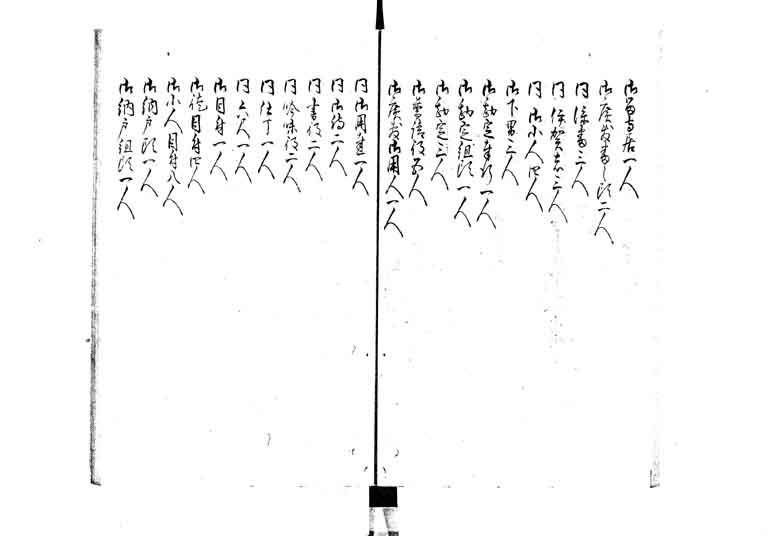 御留守居一人
御広敷番之頭二人
同添番三人
同伊賀者三人
同御小人四人
御下男三人
御勘定奉行一人
御勘定組頭一人
御勘定三人
御普請役五人
御広敷御用人一人
同御用達一人
同御侍二人
同書役二人
同吟味役二人
同仕丁一人
同六尺一人
御目付一人
御徒目付四人
御小人目付八人
御納戸頭一人
御納戸組頭一人